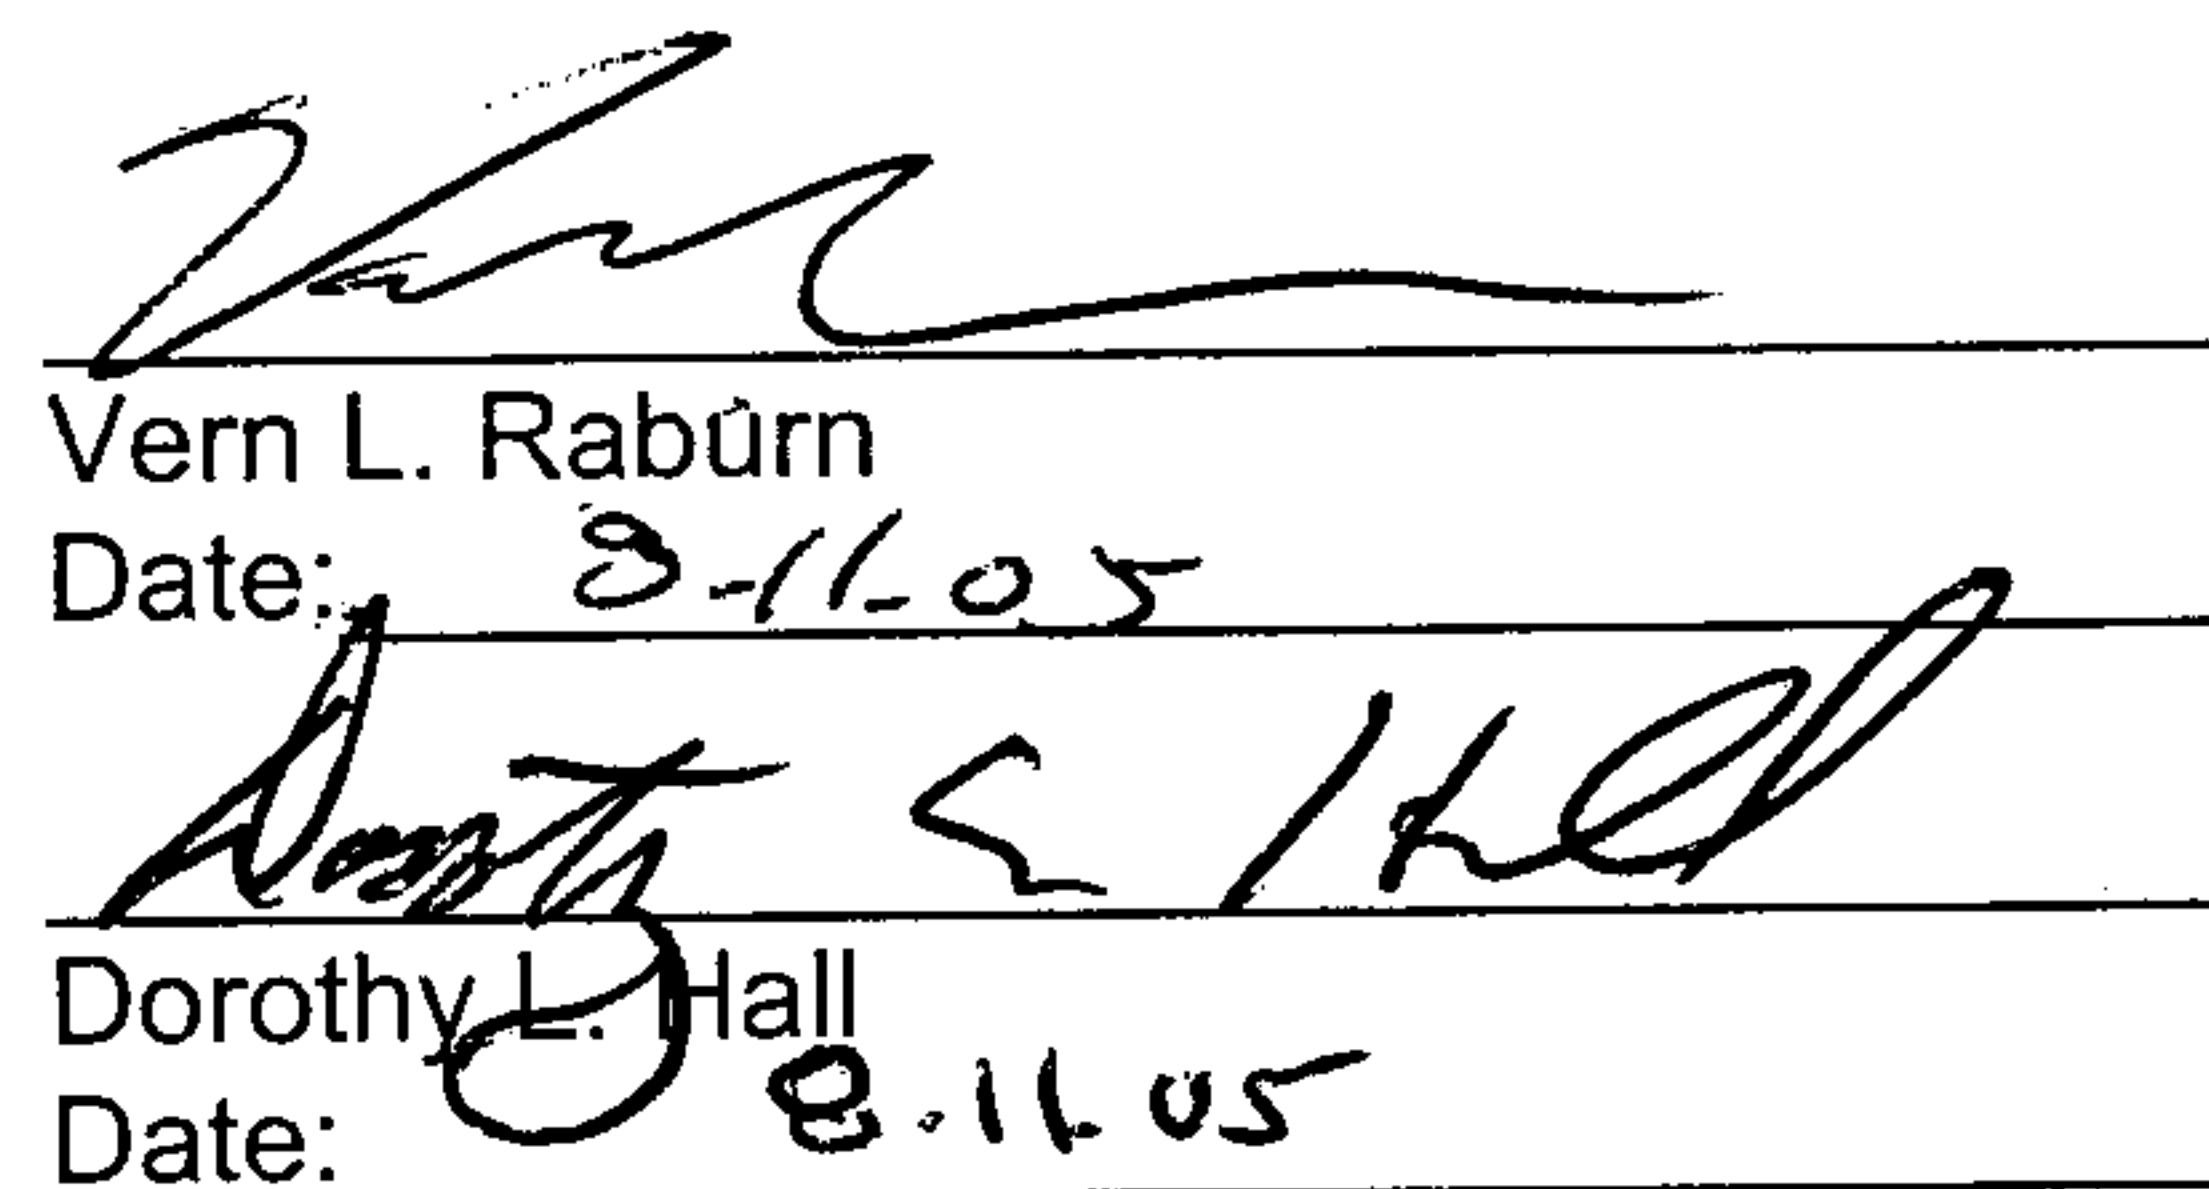 Vern L. Raburn
Date: 8-11-05
Dorothy L Hall
Dorothy L. Hall
Date: 8.11.05